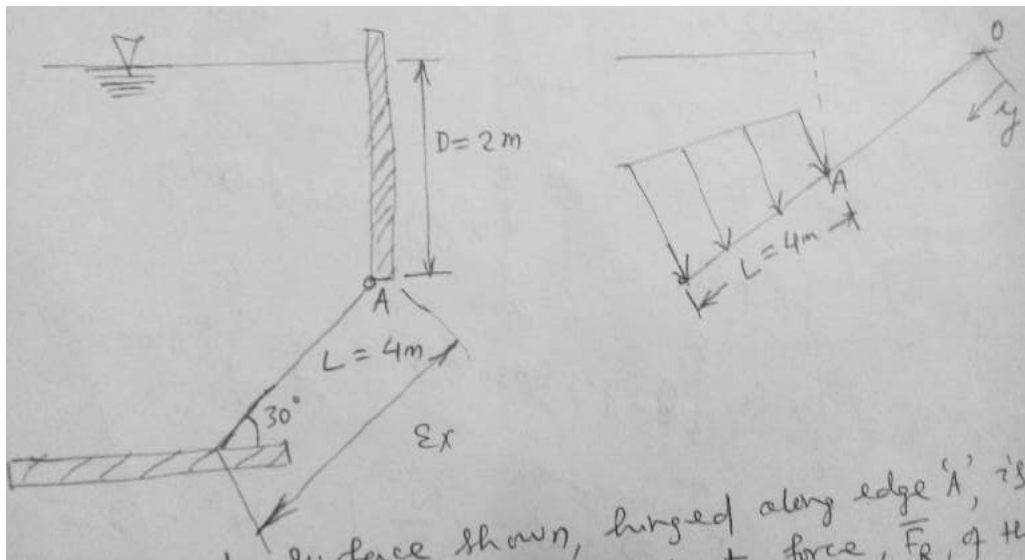 D = 2 m
A
L = 4m
30°
Ex
O
y
A
L = 4m
surface shown, hinged along edge 'A', is
force, F̅R, of th